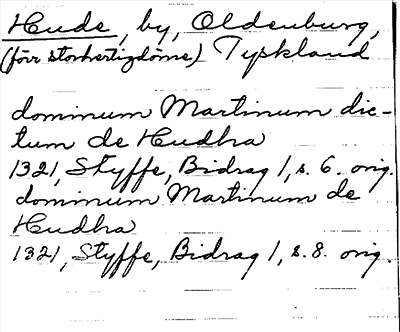 Hude, by, Oldenburg,
(förr storhertigdöme) Tyskland
dominum Martinum dic-
tum de Hudha
1321, Styffe, Bidrag 1, s. 6. orig.
dominum Martinum de
Hudha
1321, Styffe, Bidrag 1, s. 8. orig.